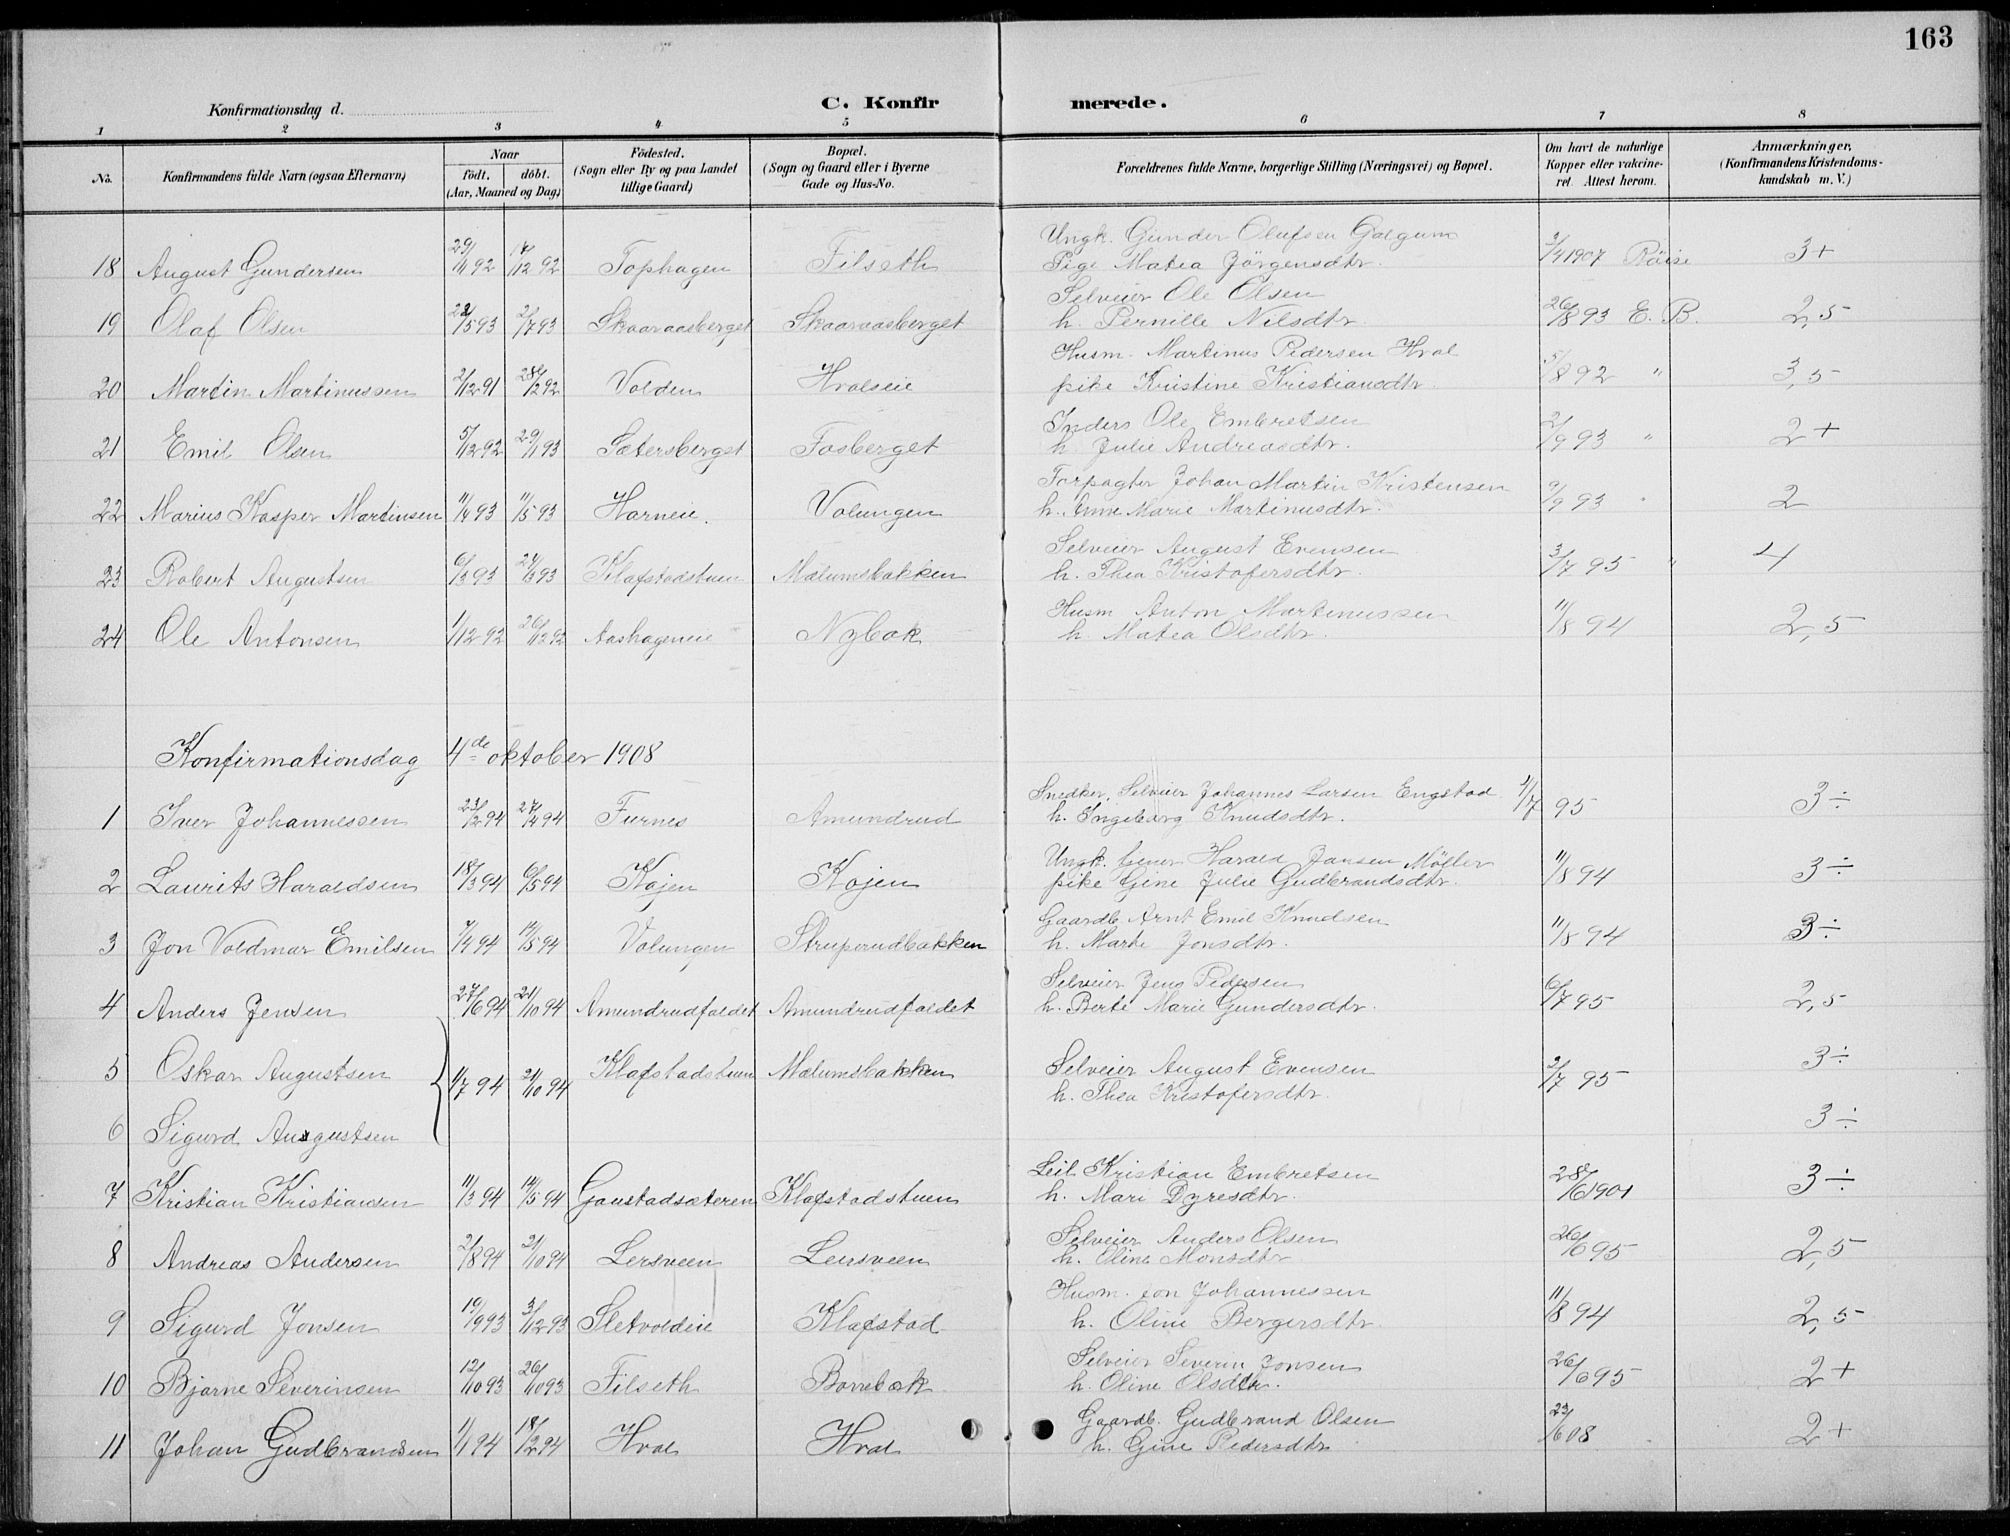 163
Konfirmationsdag d.
C. Konfirmerede.
1 2 3 4 5 6 7 8
No. Konfirmandens fulde Navn (ogsaa Efternavn) Naar født. døbt. (Aar, Maaned og Dag) Fødested. (Sogn eller By og paa Landet tillige Gaard) Bopæl. (Sogn og Gaard eller i Byerne Gade og Hus-No. Forældrenes fulde Navne, borgerlige Stilling (Næringsvei) og Bopæl. Om havt de naturlige Kopper eller vakcineret. Attest herom. Anmærkninger, (Konfirmandens Kristendomskundskab m. V.)
18 August Gundersen 29/11 92 17/12 92 Tophagen Filseth Ungk. Gunder Olufsen Galgum 3/4 1907 Röise 3+
Pige Matea Jörgensdtr.
19 Olaf Olsen 22/5 93 2/7 93 Skaaraasberget Skaaraasberget Selveier Ole Olsen 26/8 93 E. B. 2,5
h. Pernille Nilsdtr.
20 Martin Martinussen 2/12 91 28/2 92 Volden Hvalseie Husm. Martinus Pedersen Hval 5/8 92 " 3,5
pike Kristine Kristiansdtr.
21 Emil Olsen 5/12 92 29/1 93 Sætersberget Fosberget Inders Ole Embretsen 2/9 93 " 2+
h. Julie Andreasdtr.
22 Marius Kasper Martinsen 11/4 93 11/5 93 Horneie. Volungen Forpagter Johan Martin Kristensen 9/9 93 " 2
h. Anne Marie Martinusdtr.
23 Robert Augustsen 6/3 93 24/3 93 Klafstadstuen Mælumsbakken Selveier August Evensen 3/7 95 " 4
h. Thea Kristofersdtr.
24 Ole Antonsen 1/12 92 26/12 92 Aashageneie Nybak Husm Anton Martinussen 11/8 94 2,5
h. Matea Olsdtr.
Konfirmationsdag 4de oktober 1908
1 Iver Johannessen 23/2 94 27/4 94 Furnes Amundrud Snedker, Selveier Johannes Larsen Engstad 3/7 95 3÷
h. Ingeborg Knudsdtr.
2 Laurits Haraldsen 18/3 94 6/5 94 Kojen Kojen Ungk. Harald Jansen Møller 11/8 94 3÷
pike Gine Julie Gudbrandsdtr.
3 Jon Voldmar Emilsen 7/4 94 14/5 94 Volungen Struperudbakken Gaardb. Arnt Emil Knudsen 11/8 94 3÷
h. Marte Jonsdtr.
4 Anders Jensen 27/6 94 21/10 94 Amundrudfaldet Amundrudfaldet Selveier Jens Pedersen 6/7 95 2,5
h. Berte Marie Gundersdtr.
5 Oskar Augustsen 1/7 94 21/10 94 Klafstadstuen Mælumsbakken Selveier August Evensen 3/7 95 3÷
h. Thea Kristofersdtr.
6 Sigurd Augustsen 3÷
7 Kristian Kristiansen 11/3 94 14/5 94 Gaustadsæteren Klafstadstuen Leil. Kristian Embretsen 28/6 1901 3÷
h. Mari Dyresdtr.
8 Andreas Andersen 2/8 94 21/10 94 Lersveen Leirsveen Selveier Anders Olsen 26/6 95 2,5
h. Oline Monsdtr
9 Sigurd Jonsen 19/9 93 3/12 93 Sletvoldeie Klafstad Husm. Jon Johannessen 11/8 94 2,5
h. Oline Bergersdtr.
10 Bjarne Severinsen 12/10 93 26/10 93 Filseth Borrebæk Selveier Severin Jonsen 26/6 95 2+
h. Oline Olsdtr.
11 Johan Gudbrandsen 1/1 94 18/2 94 Hval Hval Gaardb. Gudbrand Olsen 23/6 08 2+
h. Gine Pedersdtr